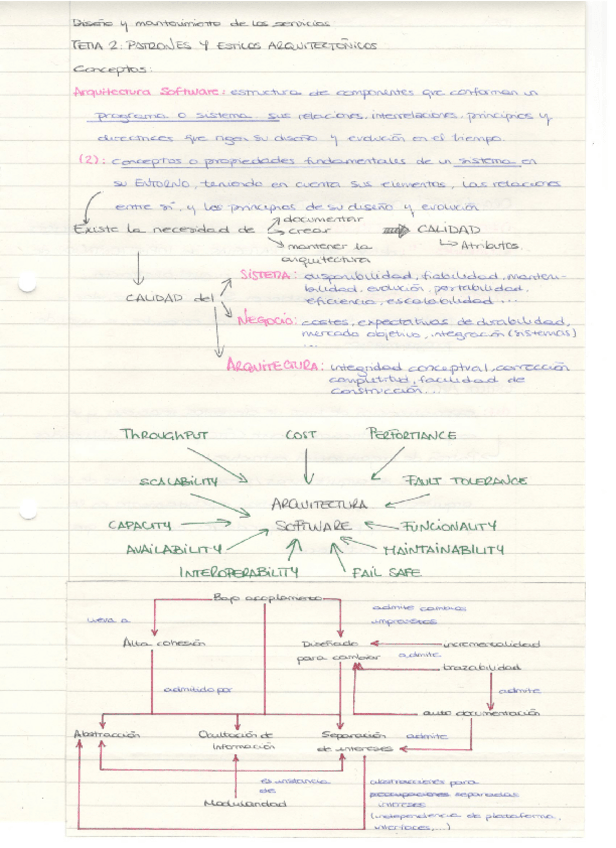 Diseño y mantenimiento de los servicios
TEMA 2: PATRONES Y ESTILOS ARQUITECTÓNICOS
Conceptos:
Arquitectura Software: estructura de componentes que conforman un
programa o sistema sus relaciones, interrelaciones, principios y
directrices que rigen su diseño y evolución en el tiempo.
(2): conceptos o propiedades fundamentales de un sistema en
su ENTORNO, teniendo en cuenta sus elementos, las relaciones
entre sí, y los principios de su diseño y evolución
documentar
Existe la necesidad de crear CALIDAD
mantener la Atributos
arquitectura
SISTEMA: disponibilidad, fiabilidad, manteni-
bilidad, evolución, portabilidad,
CALIDAD del eficiencia, escalabilidad ...
NEGOCIO: costes, expectativas de durabilidad,
mercado objetivo, integración (sistemas)
...
ARQUITECTURA: integridad conceptual, corrección
completitud, facilidad de
construcción...
THROUGHPUT COST PERFORMANCE
SCALABILITY FAULT TOLERANCE
ARQUITECTURA
CAPACITY SOFTWARE FUNCIONALITY
AVAILABILITY MAINTAINABILITY
INTEROPERABILITY FAIL SAFE
Bajo acoplamiento
lleva a admite cambios
imprevistos
Alta cohesión Diseñado incrementalidad
para cambiar admite
trazabilidad
admitido por admite
auto documentación
Abstracción Ocultación de Separación admite
Información de intereses
es instancia abstracciones para
de preocupaciones separadas
Modularidad intereses
(independencia de plataforma,
interfaces,...)